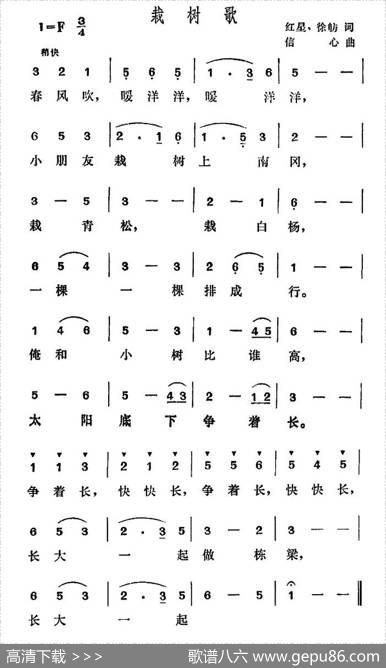 栽树歌
1=F 3/4
红星、徐帆 词
信心 曲
稍快
3 2 1 | 5 6 5 | 1 · 3 | 2 — — |
春风吹, 暖洋洋, 暖 洋 洋,
6 5 3 | 2 · 1 6 | 1 · 5 3 | 2 — — |
小朋友 栽 树 上 南 冈,
3 — 5 | 3 — — | 2 — 1 | 6 — — |
栽 青 松, 栽 白 杨,
6 5 4 | 3 — 3 | 2 6 5 | 1 — — |
一棵 一 棵 排 成 行。
1 4 6 | 5 — 3 | 1 — 4 5 | 6 — — |
俺和 小 树 比 谁 高,
5 — 6 | 5 — 4 3 | 2 — 1 2 | 3 — — |
太 阳 底 下 争 着 长。
1 1 3 | 2 1 2 | 5 5 6 | 5 4 5 |
争着长, 快快长, 争着长, 快快长,
6 5 3 | 2 · 3 5 | 3 — 2 | 1 — — |
长大 一 起 做 栋 梁,
6 5 3 | 2 · 3 5 | 5 — 6 | 1 — — ‖
长大 一 起
高清下载 >>>
歌谱八六 www.gepu86.com